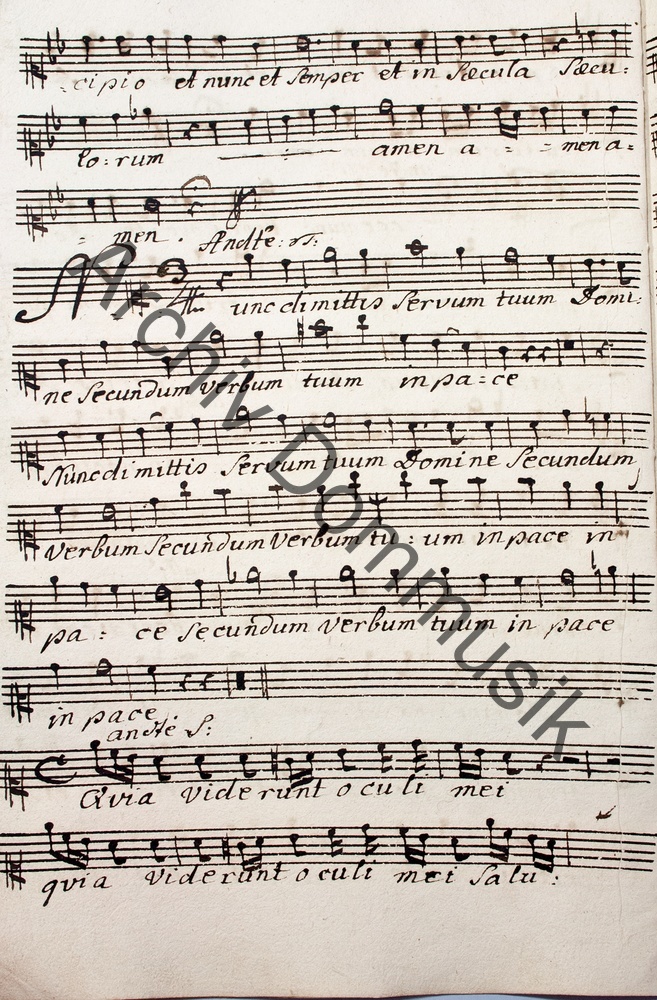 cipio et nunc et semper et in sæcula sæcu:
lo: rum amen a - - men a=
= men. Andte: T:
Nunc dimittis servum tuum Domi:
ne secundum verbum tuum in pa=ce
Nunc dimittis servum tuum Domine secundum
verbum secundum verbum tu: um in pace in
pa: ce secundum verbum tuum in pace
in pace
andte S:
Qvia viderunt oculi mei
qvia viderunt oculi mei salu:
Archiv Dommusik